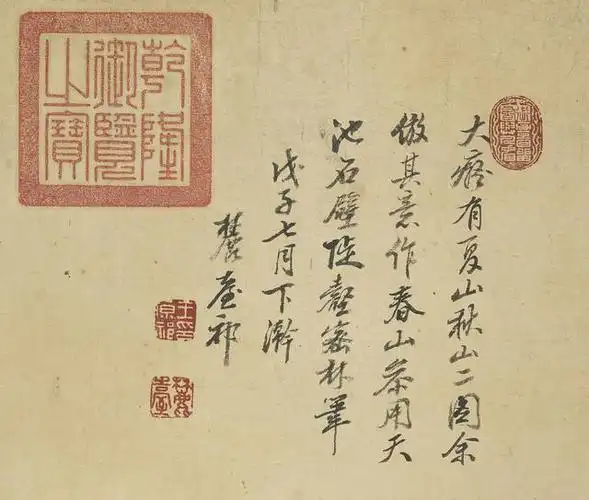 大癡有夏山秋山二圖余
倣其意作春山參用天
池石壁陡壑密林筆
戊子七月下澣
麓臺祁
乾隆
御覽
之寶